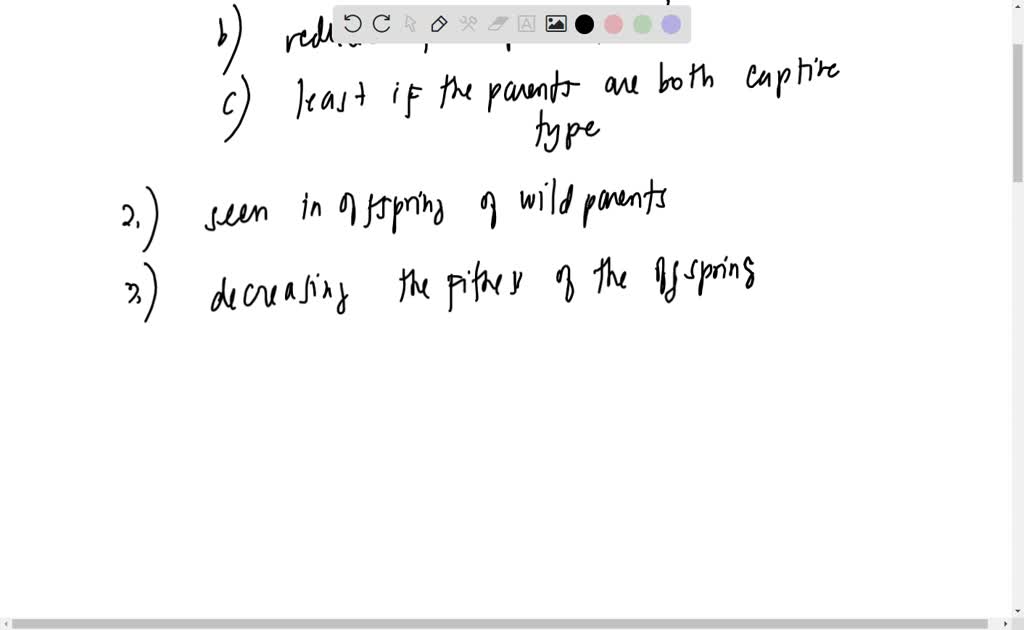 b)
c) least if the parents are both captive
type
2.) seen in offspring of wild parents
3) decreasing the fitness of the offspring